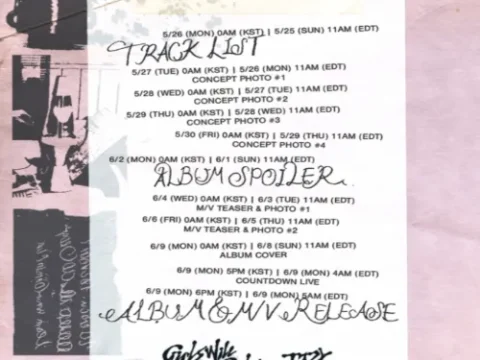 5/26 (MON) 0AM (KST) | 5/25 (SUN) 11AM (EDT)
TRACK LIST
5/27 (TUE) 0AM (KST) | 5/26 (MON) 11AM (EDT)
CONCEPT PHOTO #1
5/28 (WED) 0AM (KST) | 5/27 (TUE) 11AM (EDT)
CONCEPT PHOTO #2
5/29 (THU) 0AM (KST) | 5/28 (WED) 11AM (EDT)
CONCEPT PHOTO #3
5/30 (FRI) 0AM (KST) | 5/29 (THU) 11AM (EDT)
CONCEPT PHOTO #4
6/2 (MON) 0AM (KST) | 6/1 (SUN) 11AM (EDT)
ALBUM SPOILER
6/4 (WED) 0AM (KST) | 6/3 (TUE) 11AM (EDT)
M/V TEASER & PHOTO #1
6/6 (FRI) 0AM (KST) | 6/5 (THU) 11AM (EDT)
M/V TEASER & PHOTO #2
6/9 (MON) 0AM (KST) | 6/8 (SUN) 11AM (EDT)
ALBUM COVER
6/9 (MON) 5PM (KST) | 6/9 (MON) 4AM (EDT)
COUNTDOWN LIVE
6/9 (MON) 6PM (KST) | 6/9 (MON) 5AM (EDT)
ALBUM & M/V RELEASE
Girls Will
ITZY